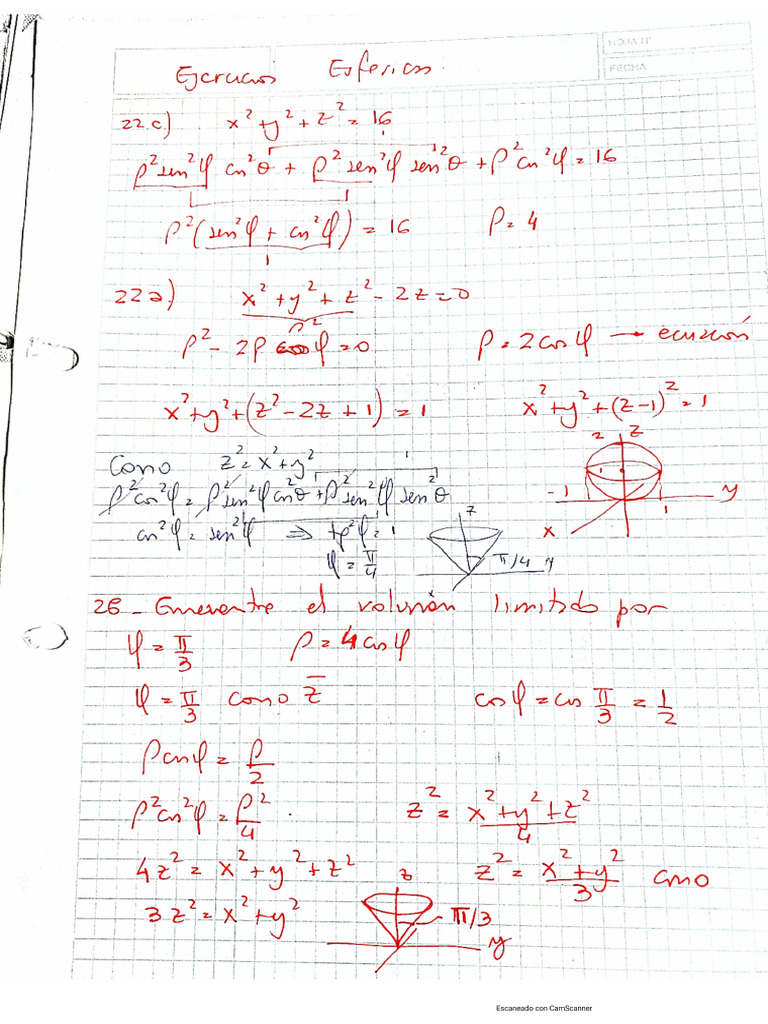 HOJA Nº
FECHA
Ejercicios Esféricas.
22.c) x² + y² + z² = 16
ρ² sen²φ cos²θ + ρ² sen²φ sen²θ + ρ² cos²φ = 16
1
ρ² (sen²φ + cos²φ) = 16 ρ = 4
1
22a.) x² + y² + z² - 2z = 0
ρ²
ρ² - 2ρ cosφ = 0 ρ = 2cosφ → ecuación
x² + y² + (z² - 2z + 1) = 1 x² + y² + (z-1)² = 1
Cono z² = x² + y²
1
ρ² cos²φ = ρ² sen²φ cos²θ + ρ² sen²φ sen²θ
cos²φ = sen²φ ⇒ tg²φ = 1
φ = π/4
z π/4 y
2 z 1 -1 1 y x
26- Encuentre el volumen limitado por
φ = π/3 ρ = 4cosφ
φ = π/3 cono z̄ cosφ = cos π/3 = 1/2
ρcosφ = ρ/2
ρ² cos²φ = ρ²/4 . z² = (x² + y² + z²)/4
4z² = x² + y² + z² z² = (x² + y²)/3 cono
3z² = x² + y²
z π/3 y
Escaneado con CamScanner